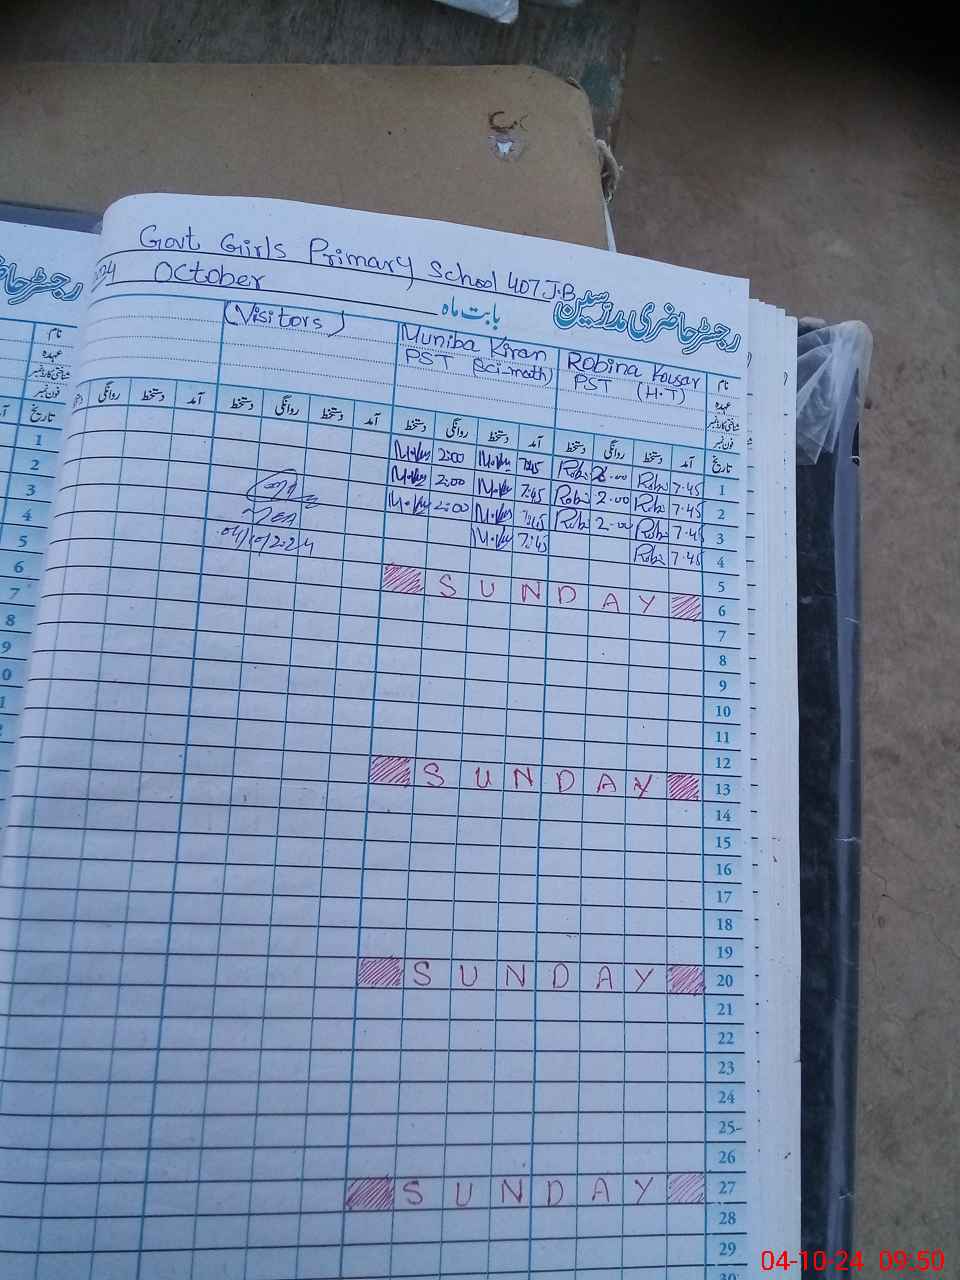 Govt Girls Primary School 407 J.B
رجسٹر حاضری مدرّسین
October
بابت ماہ
(Visitors)
Muniba Kiran
PST (Sci-math)
Robina Kousar
PST (H.T)
نام
عہدہ
شناختی کارڈ نمبر
فون نمبر
تاریخ آمد دستخط روانگی دستخط آمد دستخط روانگی دستخط آمد دستخط روانگی دستخط آمد دستخط روانگی
1 7.45 Robi 2.00 Robi 7:45 2:00
2 7.45 Robi 2.00 Robi 7:45 2:00
3 7.45 Robi 2.00 Robi 7:45 2:00
4 7.45 Robi 7:45
5
6 SUNDAY
7
8
9
10
11
12
13 SUNDAY
14
15
16
17
18
19
20 SUNDAY
21
22
23
24
25
26
27 SUNDAY
28
29
30
نام
عہدہ
شناختی کارڈ نمبر
فون نمبر
تاریخ
1
2
3
4
5
6
7
8
9
04-10-24 09:50